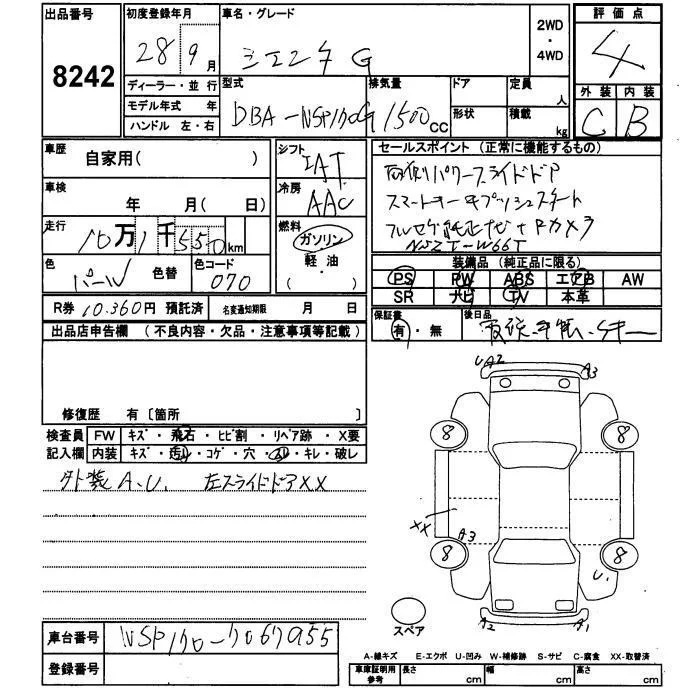 出品番号
8242
初度登録年月
28 9月
車名・グレード
シエンタ G
2WD
・
4WD
評価点
4
外装 内装
C B
ディーラー・並行
モデル年式 年
ハンドル 左・右
型式
DBA-NSP170G
排気量
1500cc
ドア
形状
定員 人
積載 kg
車歴
自家用( )
車検
年 月( 日)
走行
10万1千550km
色
パール
色替
色コード
070
シフト
IAT
冷房
AAC
燃料
ガソリン
軽油
( )
セールスポイント (正常に機能するもの)
両側パワースライドドア
スマートキー プッシュスタート
フルセグ純正ナビ+Rカメラ
NSZT-W66T
装備品 (純正品に限る)
PS PW ABS エアB AW
SR ナビ TV 本革
R券 10.360円 預託済
名変通知期限 月 日
保証書
有・無
後日品
出品店申告欄 (不良内容・欠品・注意事項等記載)
修復歴 有〔箇所 〕
検査員 FW キズ・飛石・ヒビ割・リペア跡・X要
記入欄 内装 キズ・汚れ・コゲ・穴・スレ・キレ・破レ
外装 A.U. 左スライドドアXX
UA2
A3
8
8
XX
A3
8
8
U.
A2
A1
スペア
車台番号
NSP170-7067955
登録番号
A-線キズ E-エクボ U-凹み W-補修跡 S-サビ C-腐食 XX-取替済
車庫証明用
参考
長さ cm
幅 cm
高さ cm